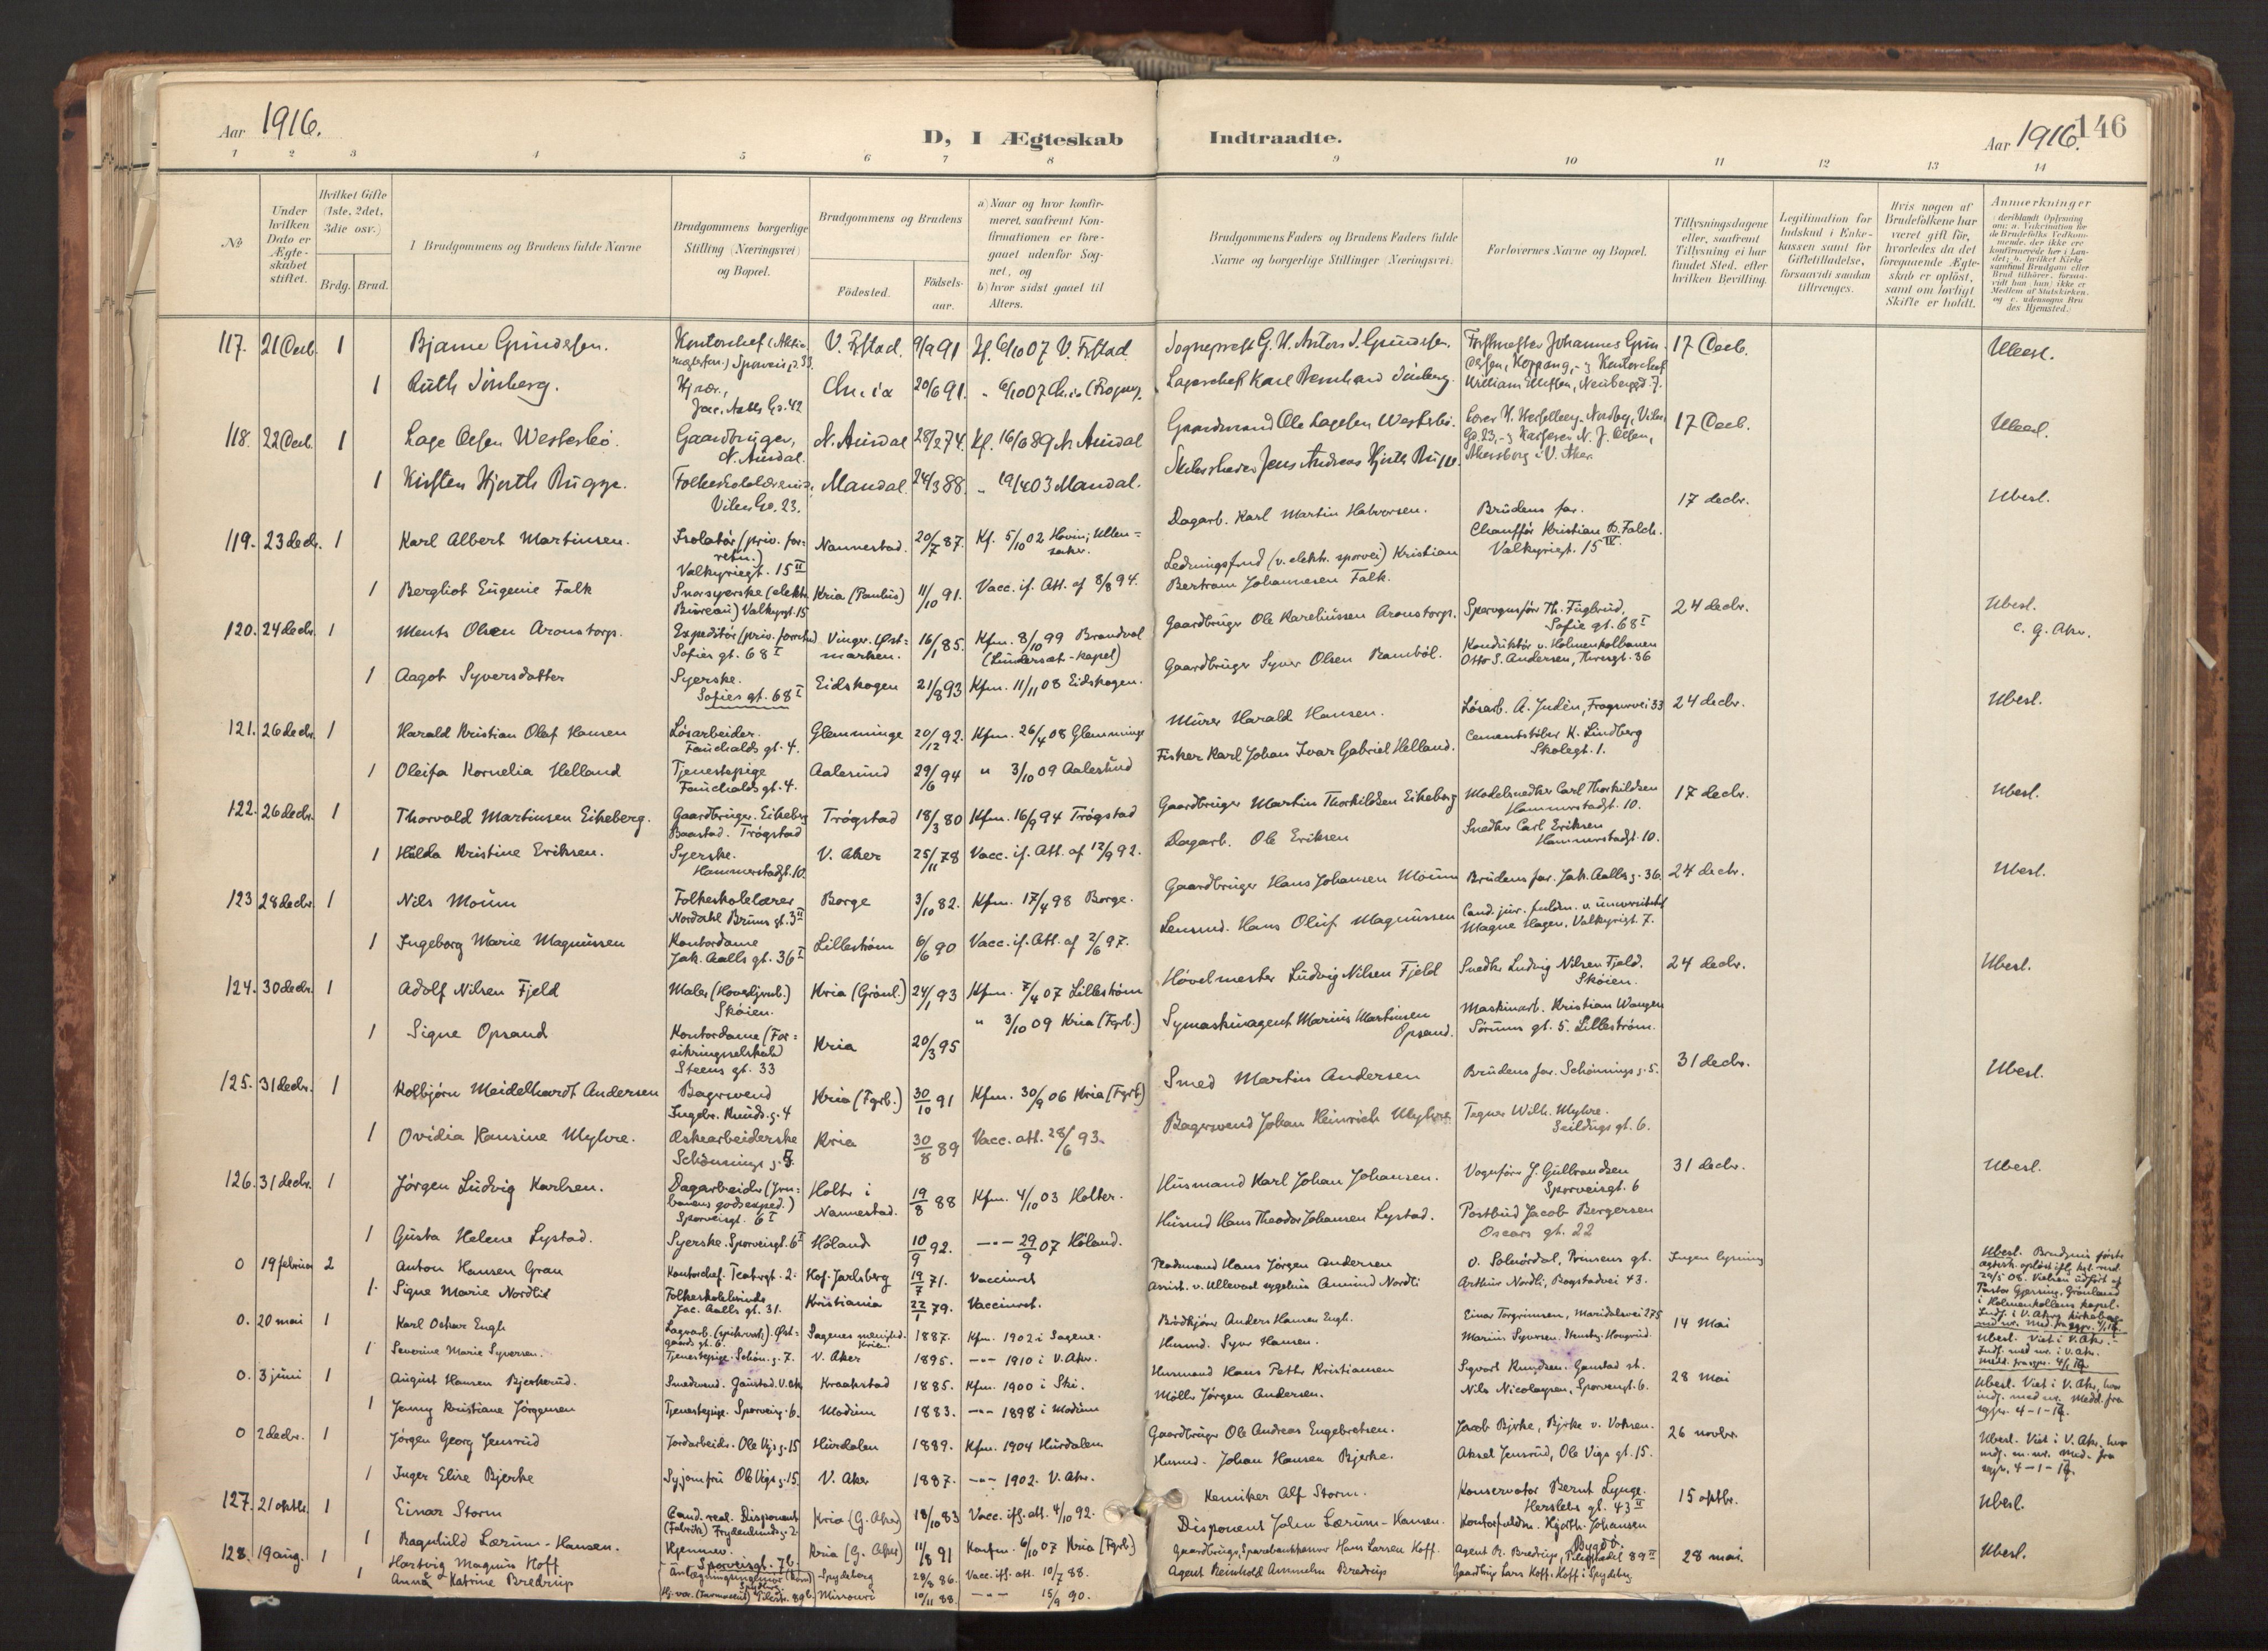 Aar 1916.
D, I Ægteskab Indtraadte.
Aar 1916. 146
1 2 3 4 5 6 7 8 9 10 11 12 13 14
№
Under hvilken Dato er Ægteskabet stiftet.
Hvilket Gifte (1ste, 2det, 3die osv.)
Brdg. Brud.
I Brudgommens og Brudens fulde Navne
Brudgommens borgerlige Stilling (Næringsvei) og Bopæl.
Brudgommens og Brudens
Födested.
Födsels-aar.
a) Naar og hvor konfirmeret, saafremt Konfirmationen er foregaaet udenfor Sognet, og
b) hvor sidst gaaet til Alters.
Brudgommens Faders og Brudens Faders fulde Navne og borgerlige Stillinger (Næringsvei)
Forlovernes Navne og Bopæl.
Tillysningsdagene eller, saafremt Tillysning ei har fundet Sted, efter hvilken Bevilling.
Legitimation for Indskud i Enkekassen samt for Giftetilladelse, forsaavidt saadan tiltrænges.
Hvis nogen af Brudefolkene har været gift før, hvorledes da det foregaaende Ægteskab er oplöst, samt om lovligt Skifte er holdt.
Anmærkninger
117. 21 Decb. 1 Bjarne Gundesen. V. Fstad. 9/9 91 Kf. 6/10 07 V. Fstad. Sogneprest 17 Decb. Ubesl.
1 Ruth Sinberg. Jac. Aalls G. 42 Ch.ia 20/6 91. " 6/10 07 Lagerchef Karl Bernhard Sinberg.
118. 22 Decb. 1 Lage Olsen Westerbö. Gaardbruger, N. Aurdal. N. Aurdal 28/2 74. Kf. 16/6 89 N. Aurdal Gaardmand Ole Lagesen Westerbö. 17 Decb. Ubesl.
1 Kirsten Hjorth Rugge. Vibes G. 23. Mandal. 24/3 88. " 19/4 03 Mandal. Jens Andreas Hjorth
119. 23 decbr. 1 Karl Albert Martinsen. Isolatör (priv. forretn.) Valkyriegt. 15 II Nannestad. 20/7 87. Kf. 5/10 02 Hovin, Ullensaker. Dagarb. Karl Martin Halvorsen. Brudens far. Chaufför Kristian B. Falch. Valkyrigt. 15 IV. 17 decbr. Ubesl.
1 Bergliot Eugenie Falk Valkyrgt. 15 Kria (Paulus) 11/10 91. Vacc. if. Att. af 8/8 94. (v. elektr. sporvei) Kristian Bertram Johannesen Falk.
120. 24 decbr. 1 Ments Olsen Aronstorp. Expeditör Sofies gt. 68 I Vinger. Östmarken. 16/1 85. Kfm. 8/10 99 Brandval (Lundersæt-kapel) Gaardbruger Ole Karelinssen Aronstorp. Th. Fuglerud, Sofie gt. 68 I 24 decbr. Ubesl. c. G. Aker.
1 Aagot Syversdatter Syerske. Sofies gt. 68 I Eidskogen 21/8 93 Kfm. 11/11 08 Eidskogen. Gaardbruger Syver Olsen Ramböl. Konduktör v. Holmenkolbanen Otto S. Andersen, Theresgt. 36
121. 26 decbr. 1 Harald Kristian Olaf Hansen Lösarbeider. Fauchalds gt. 4. Glemminge 20/12 92. Kfm. 26/4 08 Glemminge Murer Harald Hansen. Lösarb. A. Judén, Frognervei 33 24 decbr. Ubesl.
1 Oleifa Kornelia Helland Tjenestepige Fauchalds gt. 4. Aalesund 29/6 94 " 3/10 09 Aalesund Fisker Karl Johan Ivar Gabriel Helland. Cementstöber K. Lindberg Skolegt. 1.
122. 26 decbr. 1 Thorvald Martinsen Eikeberg. Gaardbruger. Eikeberg Baastad. Trögstad Trögstad 18/3 80 Kfm. 16/9 94 Trögstad Gaardbruger Martin Thorkildsen Eikeberg Modelsnedker Carl Thorkildsen Hammerstadgt. 10. 17 decbr. Ubesl.
1 Hilda Kristine Eriksen. Syerske. Hammerstadgt. 10. V. Aker 25/11 78 Vacc. if. Att. af 12/9 92. Dagarb. Ole Eriksen Snedker Carl Eriksen Hammerstadgt. 10.
123 28 decbr. 1 Nils Moum Folkeskolelærer Nordahl Bruns gt. 3 II Borge 3/10 82. Kfm. 17/4 98 Borge. Gaardbruger Hans Johansen Moum Brudens far. Jak. Aalls g. 36. 24 decbr. Ubesl.
1 Ingeborg Marie Magnussen Kontordame Jak. Aalls gt. 36 I Lilleström 6/6 90 Vacc. if. Att. af 2/6 97. Lensmd. Hans Oluf Magnussen Cand. jur. fuldm. v. universitetet Magne Hagen, Valkyrigt. 7.
124. 30 decbr. 1 Adolf Nilsen Fjeld Maler Sköien. Kria (Grönl.) 24/1 93 Kfm. 7/4 07 Lilleström Hövelmester Ludvig Nilsen Fjeld Snedker Ludvig Nilsen Fjeld. Sköien. 24 decbr. Ubesl.
1 Signe Opsand Kontordame (Forsikringsselskab) Steens gt. 33 Kria 20/3 95 " 3/10 09 Kria (Fgrb.) Symaskinagent Marius Martinsen Opsand. Maskinarb. Kristian Wangen Sörums gt. 5. Lilleström.
125. 31 decbr. 1 Kolbjörn Meidelhardt Andersen Bagersvend Ingebr. Knuds. g. 4 Kria (Fgrb.) 30/10 91 Kfm. 30/9 06 Kria (Fgrb) Smed Martin Andersen Brudens far. Schönnings g. 5. 31 decbr. Ubesl.
1 Ovidia Hansine Myhre. Æskearbeiderske Schönnings g. 5. Kria 30/8 89 Vacc. att. 28/6 93. Bagersvend Johan Heinrich Myhre Tegner Wilh. Myhre. Seildugs gt. 6.
126. 31 decbr. 1 Jörgen Ludvig Karlsen. Dagarbeider (Jernbanens godsexped.) Sporveisgt. 6 I Holter i Nannestad. 19/8 88 Kfm. 4/10 03 Holter. Husmand Karl Johan Johansen. Vognförer J. Gulbrandsen Sporveisgt. 6 31 decbr. Ubesl.
1 Gusta Helene Lystad. Syerske. Sporveisgt. 6 I Höland 10/9 92. —"— 29/9 07 Höland. Husmd Hans Theodor Johansen Lystad. Postbud Jacob Bergersen Oscars gt. 22
0 19 februar 2 Anton Hansen Grau Kontorchef. Teatergt. 2. Hof. Jarlsberg 19/7 71. Vaccineret Hans Jörgen Andersen Prinsens gt. Ingen lysning Ubesl.
1. Signe Marie Nordlid Jac. Aalls gt. 31. Kristiania 22/1 79. Vaccineret. Assist. v. Ullevaal sygehus Amund Nordli Arthur Nordli, Bogstadvei 43.
0. 20 mai 1 Karl Oskar Engh Lagerarb. Sagenes menighed. Kria. 1887. Kfm. 1902 i Sagene. Bödkjær Anders Hansen Engh. Einar Torgrimsen, Maridalsvei 275 14 Mai Ubesl. Viet i V. Aker.
1 Severine Marie Syversen. Tjenestepige. Schön. g. 7. V. Aker 1895. —"— 1910 i V. Aker. Husmd. Syver Hansen. Marius Syversen.
0. 3 juni 1 August Hansen Bjerkerud. Smedsvend. Gaustad. V. Ak Kraakstad 1885. Kfm. 1900 i Ski. Husmand Hans Petter Kristiansen Sigvart Knudsen. Gaustad st. 28 Mai Ubesl. Viet i V. Aker, hvor indf. med nr. Medd. fra sgpr. 4-1-17.
1 Jenny Kristiane Jörgensen Tjenestepige. Sporveisg. 6. Modum 1883. —"— 1898 i Modum Möller Jörgen Andersen. Nils Nicolaysen, Sporveisgt. 6.
0 2 decbr. 1 Jörgen Georg Jensrud Jordarbeider. Ole Vigs g. 15 Hurdalen 1889. Kfm. 1904 Hurdalen Gaardbruger Ole Andreas Engebretsen. Jacob Bjerke, Bjerke v. Voksen. 26 novbr. Ubesl. Viet i V. Aker, hvor indf. m. nr. Med. fra sgpr. 4-1-17.
1 Inger Elise Bjerke Syjomfru Ole Vigs g. 15 V. Aker 1887. —"— 1902. V. Aker. Husmd. Johan Hansen Bjerke. Aksel Jensrud, Ole Vigs gt. 15.
127. 21 oktbr. 1 Einar Storm Cand. real. Disponent (Fabrik) Frydenlunds g. 2. Kria (G. Aker) 18/10 83 Vacc. ifl. att. 4/10 92. Kemiker Alf Storm. Konservator Bernt Lynge. Herslebs gt. 43 II 15 oktbr. Ubesl.
1 Ragnhild Lærum-Hansen. Hjemmev. Sporveisgt. 7 b. Kria (G. Aker) 11/8 91 Konfm. 6/10 07 Kria (Fgrb.) Disponent John Lærum-Hansen. Kontorfuldm. Hjalth. Johansen Bygdö.
128. 19 aug. 1 Hartvig Magnus Hoff Spydeberg 28/8 86. Vacc. ifl. att. 10/7 88. Gaardbruger, Sparebankkasserer Hans Larsen Hoff. Agent R. Bredrup, Pilestrædet 89 II 28 mai. Ubesl.
1 Anna Katrine Bredrup Pilestr. 89 b. Missouri 10/11 88. —"— 15/9 90. Agent Reinhold Bredrup Gaardbrug Lars Hoff. Hoff i Spydeberg